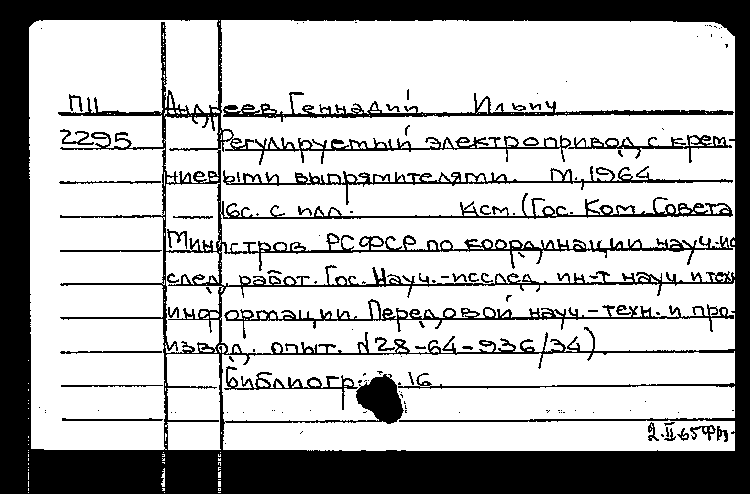 П11 Андреев, Геннадий Ильич
2295 Регулируемый электропривод с крем-
ниевыми выпрямителями. М., 1964
16с. с илл. 4см. (Гос. Ком. Совета
Министров РСФСР по координации науч.-ис
след. работ. Гос. Науч.-исслед. ин-т науч. и техн
информации. Передовой науч.-техн. и про-
извод. опыт. №28-64-936/34).
Библиогр. 16.
2.II.65